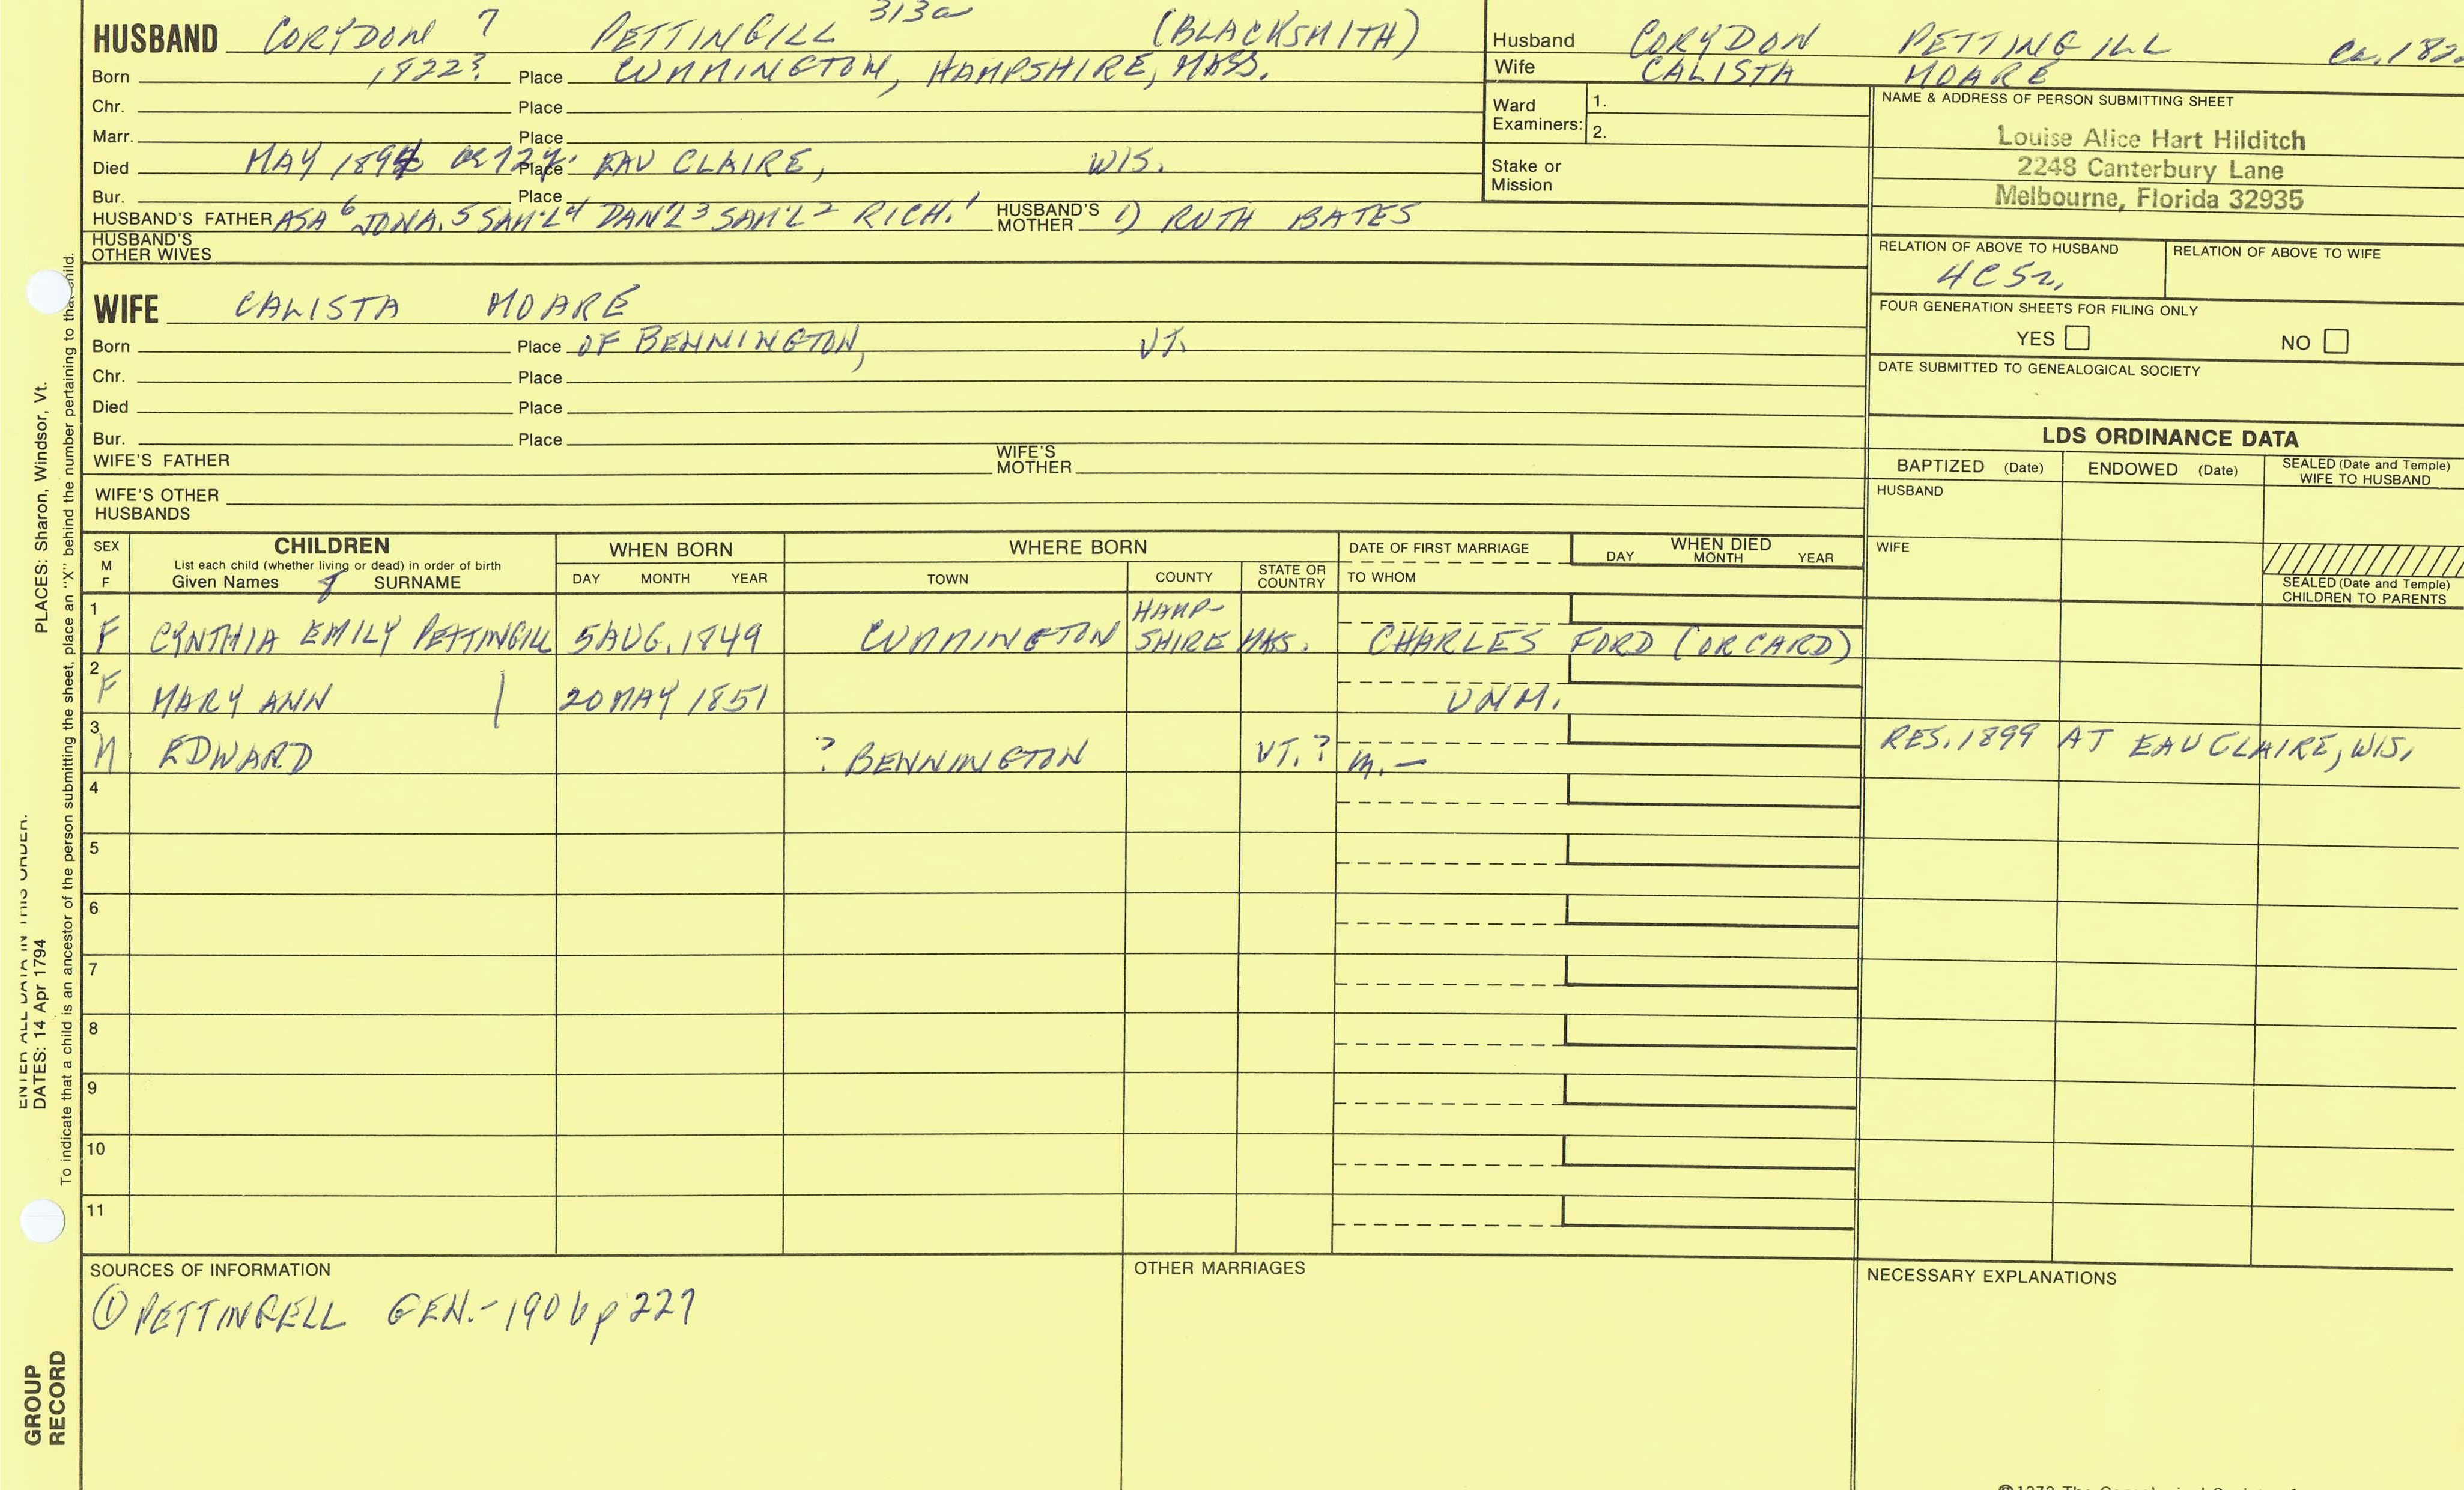 313a
HUSBAND CORYDON 7 PETTINGILL (BLACKSMITH)
Born 1822? Place CUMMINGTON, HAMPSHIRE, MASS.
Chr. Place
Marr. Place
Died MAY 1894 ae 72y. Place EAU CLAIRE, WIS.
Bur. Place
HUSBAND'S FATHER ASA 6 JONA. 5 SAM'L 4 DAN'L 3 SAM'L 2 RICH. 1 HUSBAND'S MOTHER 1) RUTH BATES
HUSBAND'S OTHER WIVES
Husband CORYDON PETTINGILL ca. 182
Wife CALISTA MOARE
Ward Examiners: 1.
2.
Stake or Mission
NAME & ADDRESS OF PERSON SUBMITTING SHEET
Louise Alice Hart Hilditch
2248 Canterbury Lane
Melbourne, Florida 32935
RELATION OF ABOVE TO HUSBAND RELATION OF ABOVE TO WIFE
4C5r.
FOUR GENERATION SHEETS FOR FILING ONLY
YES NO
DATE SUBMITTED TO GENEALOGICAL SOCIETY
WIFE CALISTA MOARE
Born Place OF BENNINGTON, VT.
Chr. Place
Died Place
Bur. Place
WIFE'S FATHER WIFE'S MOTHER
WIFE'S OTHER HUSBANDS
LDS ORDINANCE DATA
BAPTIZED (Date) ENDOWED (Date) SEALED (Date and Temple) WIFE TO HUSBAND
HUSBAND
WIFE
SEALED (Date and Temple) CHILDREN TO PARENTS
SEX M F
CHILDREN
List each child (whether living or dead) in order of birth
Given Names 8 SURNAME
WHEN BORN
DAY MONTH YEAR
WHERE BORN
TOWN COUNTY STATE OR COUNTRY
DATE OF FIRST MARRIAGE
TO WHOM
WHEN DIED
DAY MONTH YEAR
1 F CYNTHIA EMILY PETTINGILL 5 AUG. 1849 CUMMINGTON HAMP-SHIRE MAS. CHARLES FORD (OR CARD)
2 F MARY ANN 20 MAY 1851 UNM.
3 M EDWARD ? BENNINGTON VT.? m.— RES. 1899 AT EAU CLAIRE, WIS.
4
5
6
7
8
9
10
11
SOURCES OF INFORMATION
① PETTINGELL GEN.-1906 p 227
OTHER MARRIAGES
NECESSARY EXPLANATIONS
ENTER ALL DATA IN THIS ORDER.
DATES: 14 Apr 1794 PLACES: Sharon, Windsor, Vt.
To indicate that a child is an ancestor of the person submitting the sheet, place an "X" behind the number pertaining to that child.
GROUP RECORD